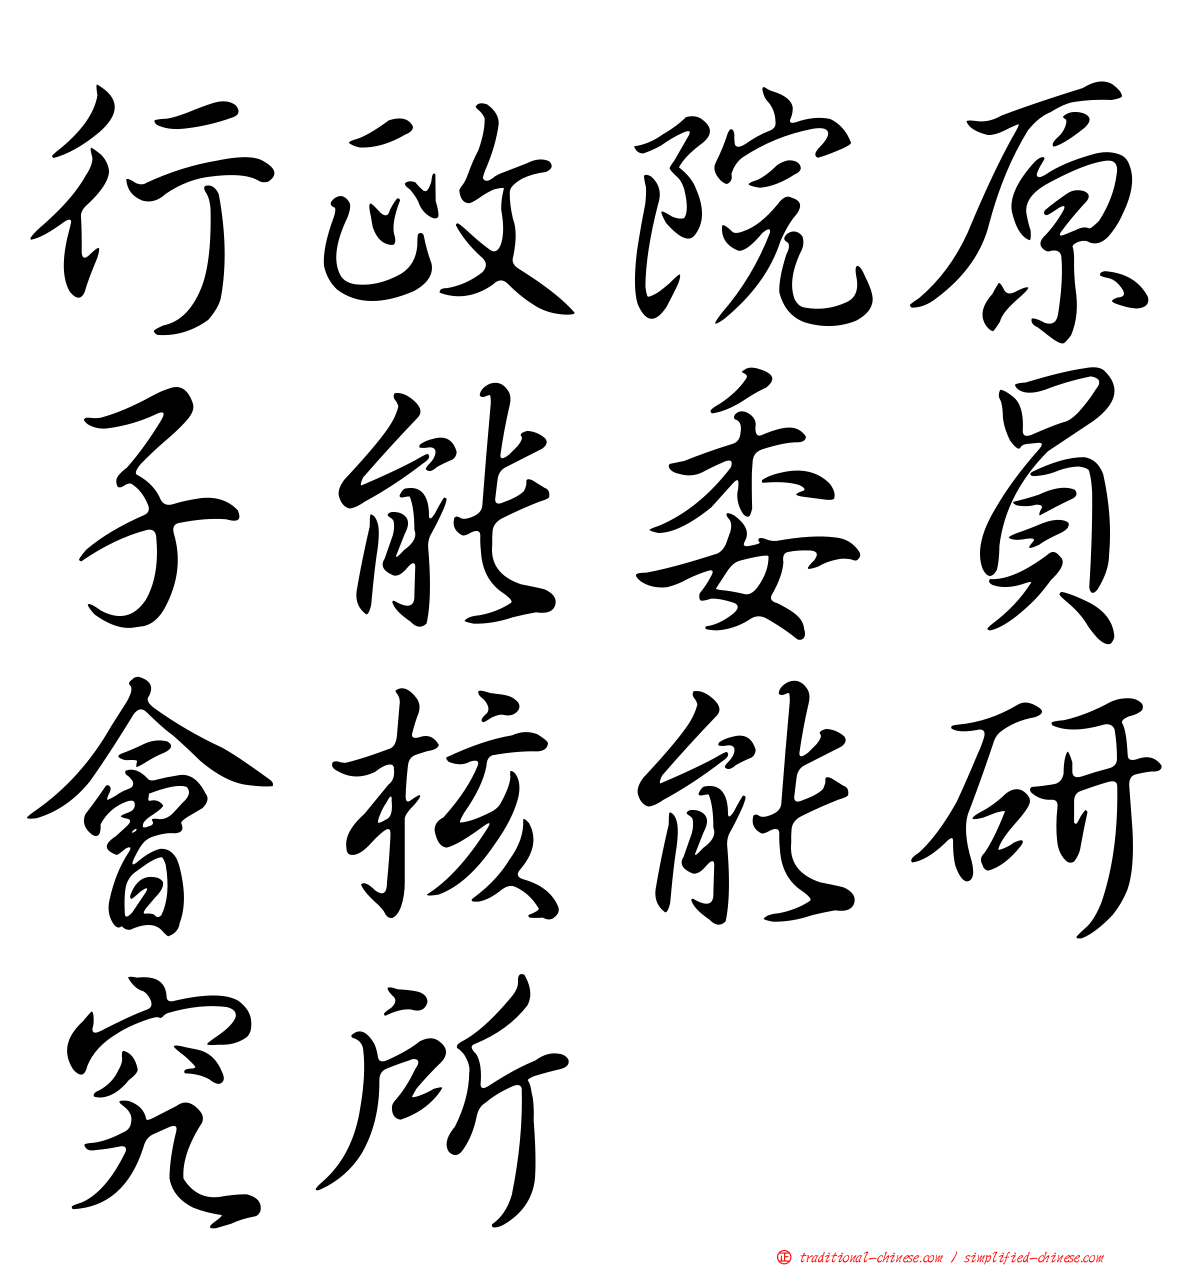 行政院原
子能委員
會核能研
究所
正 traditional-chinese.com / simplified-chinese.com